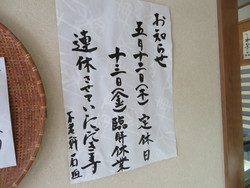 お知らせ
五月十二日(木)定休日
十三日(金)臨時休業
連休させていただきます